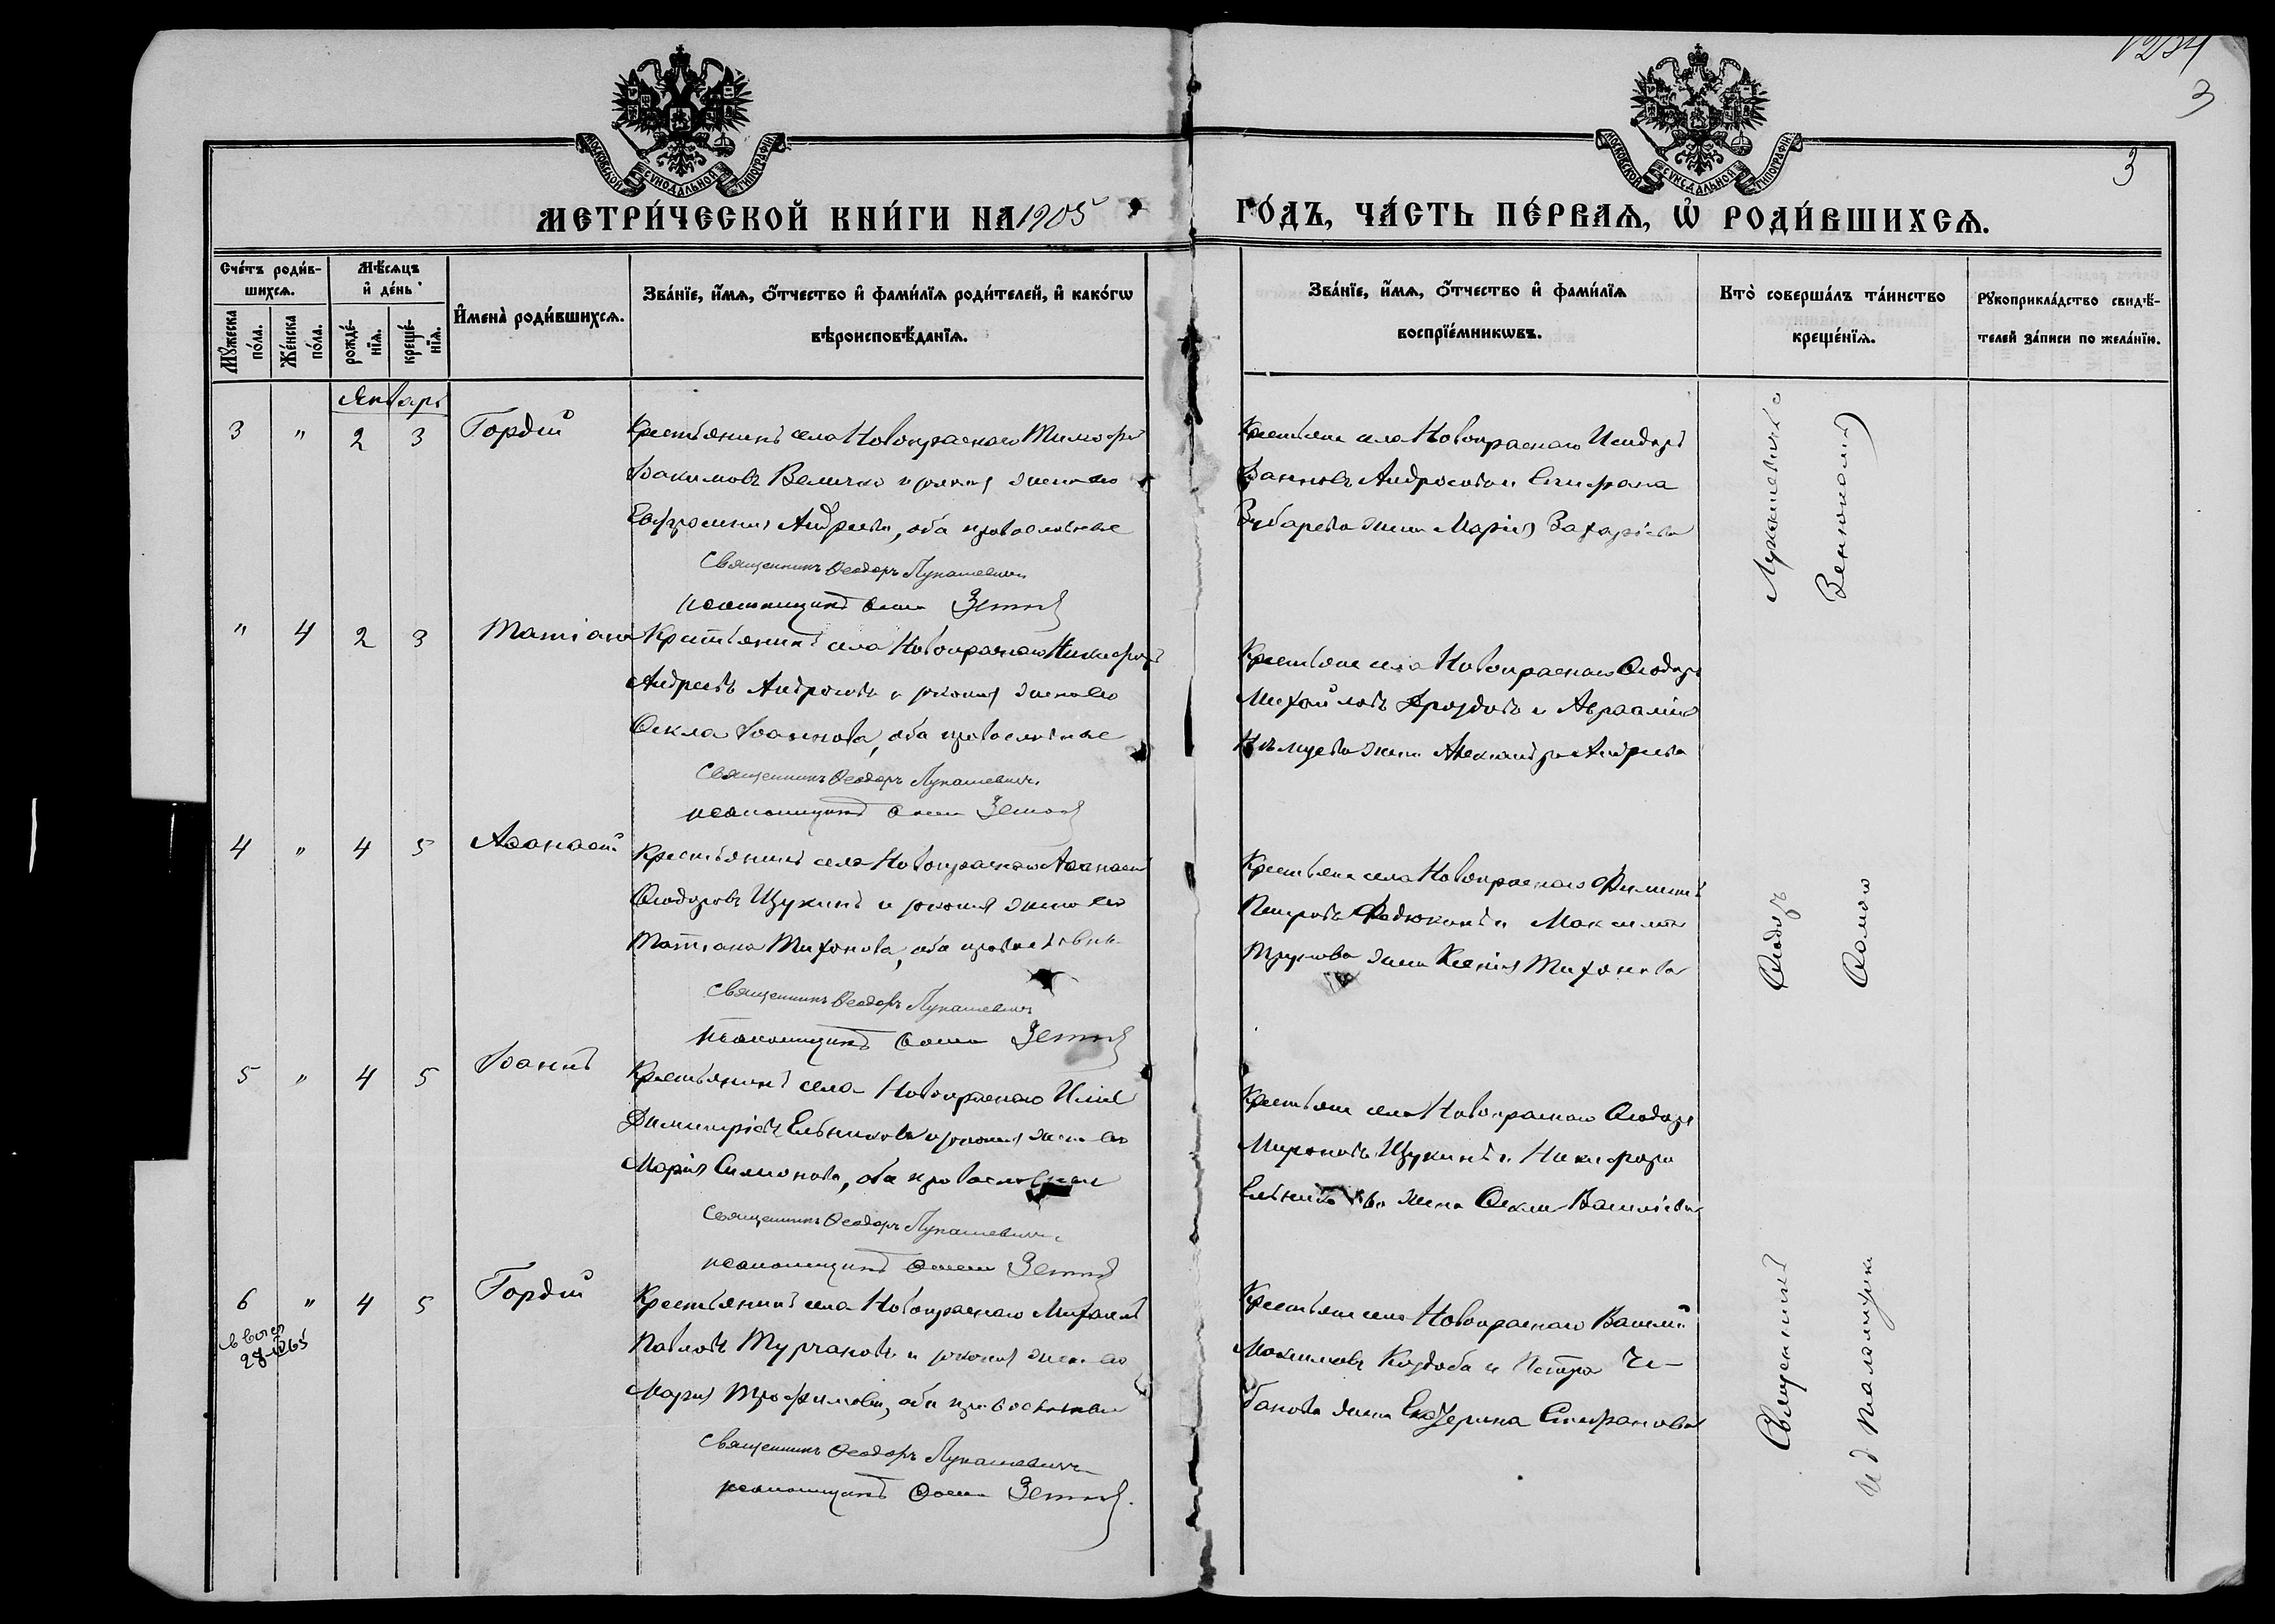 1234
3
3
МОСКОВСКОЙ СУНОДАЛЬНОЙ ТИПОГРАФІИ
МОСКОВСКОЙ СУНОДАЛЬНОЙ ТИПОГРАФІИ
МЕТРИ́ЧЕСКОЙ КНИ́ГИ НА 1905
ГО́ДЪ, ЧА́СТЬ ПЕ́РВАѦ, Ѡ҆ РОДИ́ВШИХСѦ.
Сче́тъ роди́в-
шихсѧ.
Мꙋ́жеска по́ла.
Же́нска по́ла.
Мѣ́сѧцъ
и҆ де́нь
рожде́-
нїѧ.
креще́-
нїѧ.
И҆мена̀ роди́вшихсѧ.
Зва́нїе, и҆́мѧ, ѻ҆́тчество и҆ фами́лїѧ роди́телей, и҆ како́гѡ
вѣроисповѣ́данїѧ.
Зва́нїе, и҆́мѧ, ѻ҆́тчество и҆ фами́лїѧ
воспрїе́мникѡвъ.
Кто̀ соверша́лъ та́инство
креще́нїѧ.
Рꙋкоприкла́дство свидѣ́-
телей за́писи по жела́нїю.
Январь
3 " 2 3 Гордій
Крестьянинъ села Новокраснаго Тимофей
Іоакимовъ Величко и законная жена его
Евфросинія Андреева, оба православные
Священникъ Ѳеодоръ Лукашевичъ
псаломщикъ
Крестьяне села Новокраснаго Исидоръ
Іоанновъ Андросовъ и Стефана
Зубарева жена Марія Захаріева
" 4 2 3 Татіана
Крестьянинъ села Новокраснаго Никифоръ
Андреевъ Андросовъ и законная жена его
Ѳекла Іоаннова, оба православные
Священникъ Ѳеодоръ Лукашевичъ
псаломщикъ
Крестьяне села Новокраснаго Ѳеодоръ
Михайловъ Дроздовъ и Авраамія
жена Александра Андреева
4 " 4 5 Аѳанасій
Крестьянинъ села Новокраснаго Аѳанасій
Ѳеодоровъ Щукинъ и законная жена его
Татіана Тихонова, оба православные
Священникъ Ѳеодоръ Лукашевичъ
псаломщикъ
Крестьяне села Новокраснаго Филиппъ
Петровъ Федюкинъ и Максима
жена Ксенія Тихонова
5 " 4 5 Іоаннъ
Крестьянинъ села Новокраснаго Илія
Димитріевъ Ельниковъ и законная жена его
Марія Симонова, оба православные
Священникъ Ѳеодоръ Лукашевичъ
псаломщикъ
Крестьяне села Новокраснаго Ѳеодоръ
Мироновъ Щукинъ и Никифора
Ельникова жена Ѳекла Василіева
6 " 4 5 Гордій
Крестьянинъ села Новокраснаго Михаилъ
Павловъ Турчановъ и законная жена его
Марія Трофимова, оба православные
Священникъ Ѳеодоръ Лукашевичъ
псаломщикъ
Крестьяне села Новокраснаго Василій
Максимовъ Коздоба и Петра Че-
банова жена Екатерина Стефанова
Священникъ
Ѳеодоръ
Лукашевичъ
и д Псаломщика